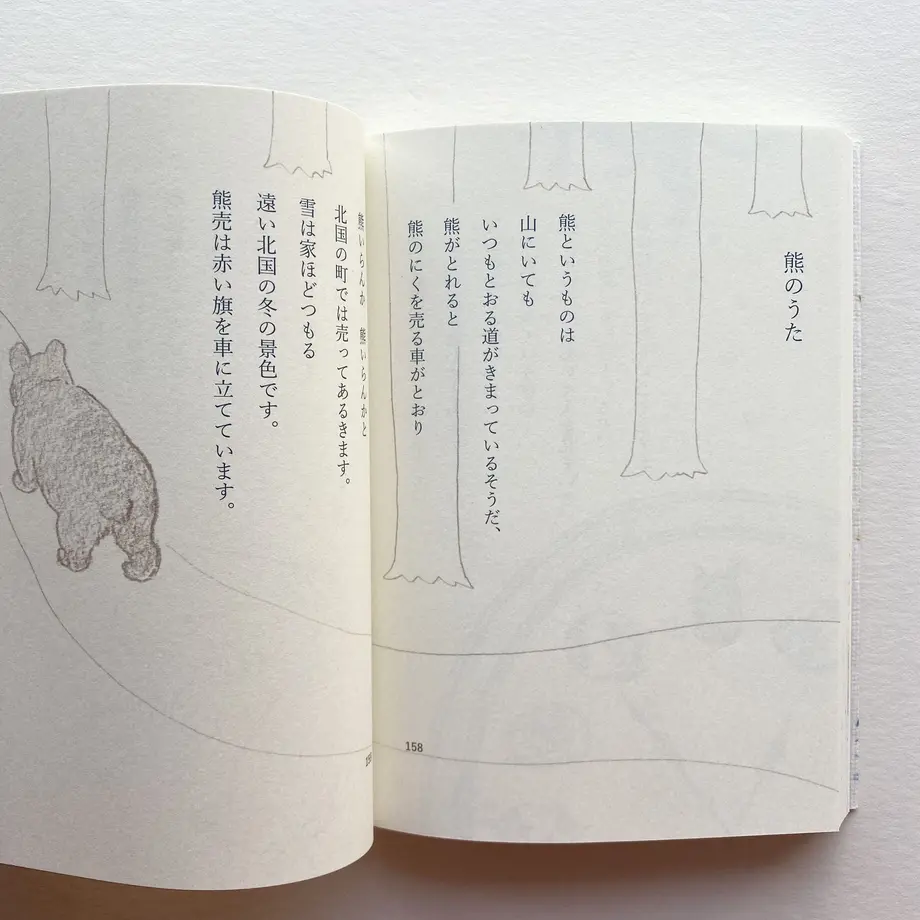 熊のうた
熊というものは
山にいても
いつもとおる道がきまっているそうだ、
熊がとれると
熊のにくを売る車がとおり
158
熊いらんか　熊いらんかと
北国の町では売ってあるきます。
雪は家ほどつもる
遠い北国の冬の景色です。
熊売は赤い旗を車に立てています。